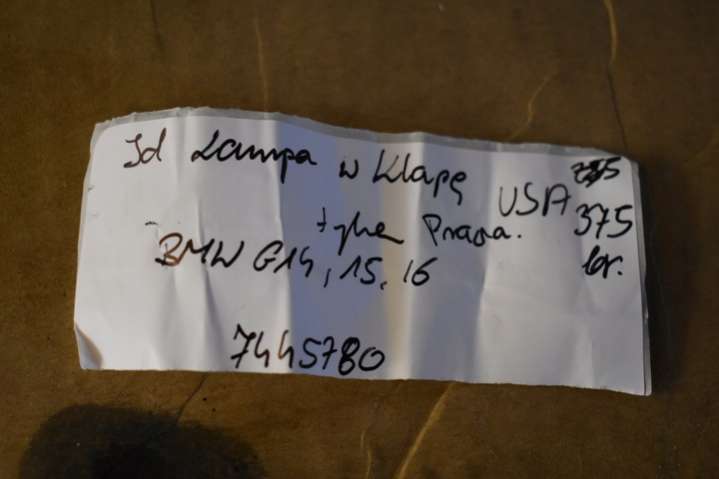 Id Lampa w Klapę
USA 375
tylna Prawa. br.
BMW G14, 15, 16
7445780